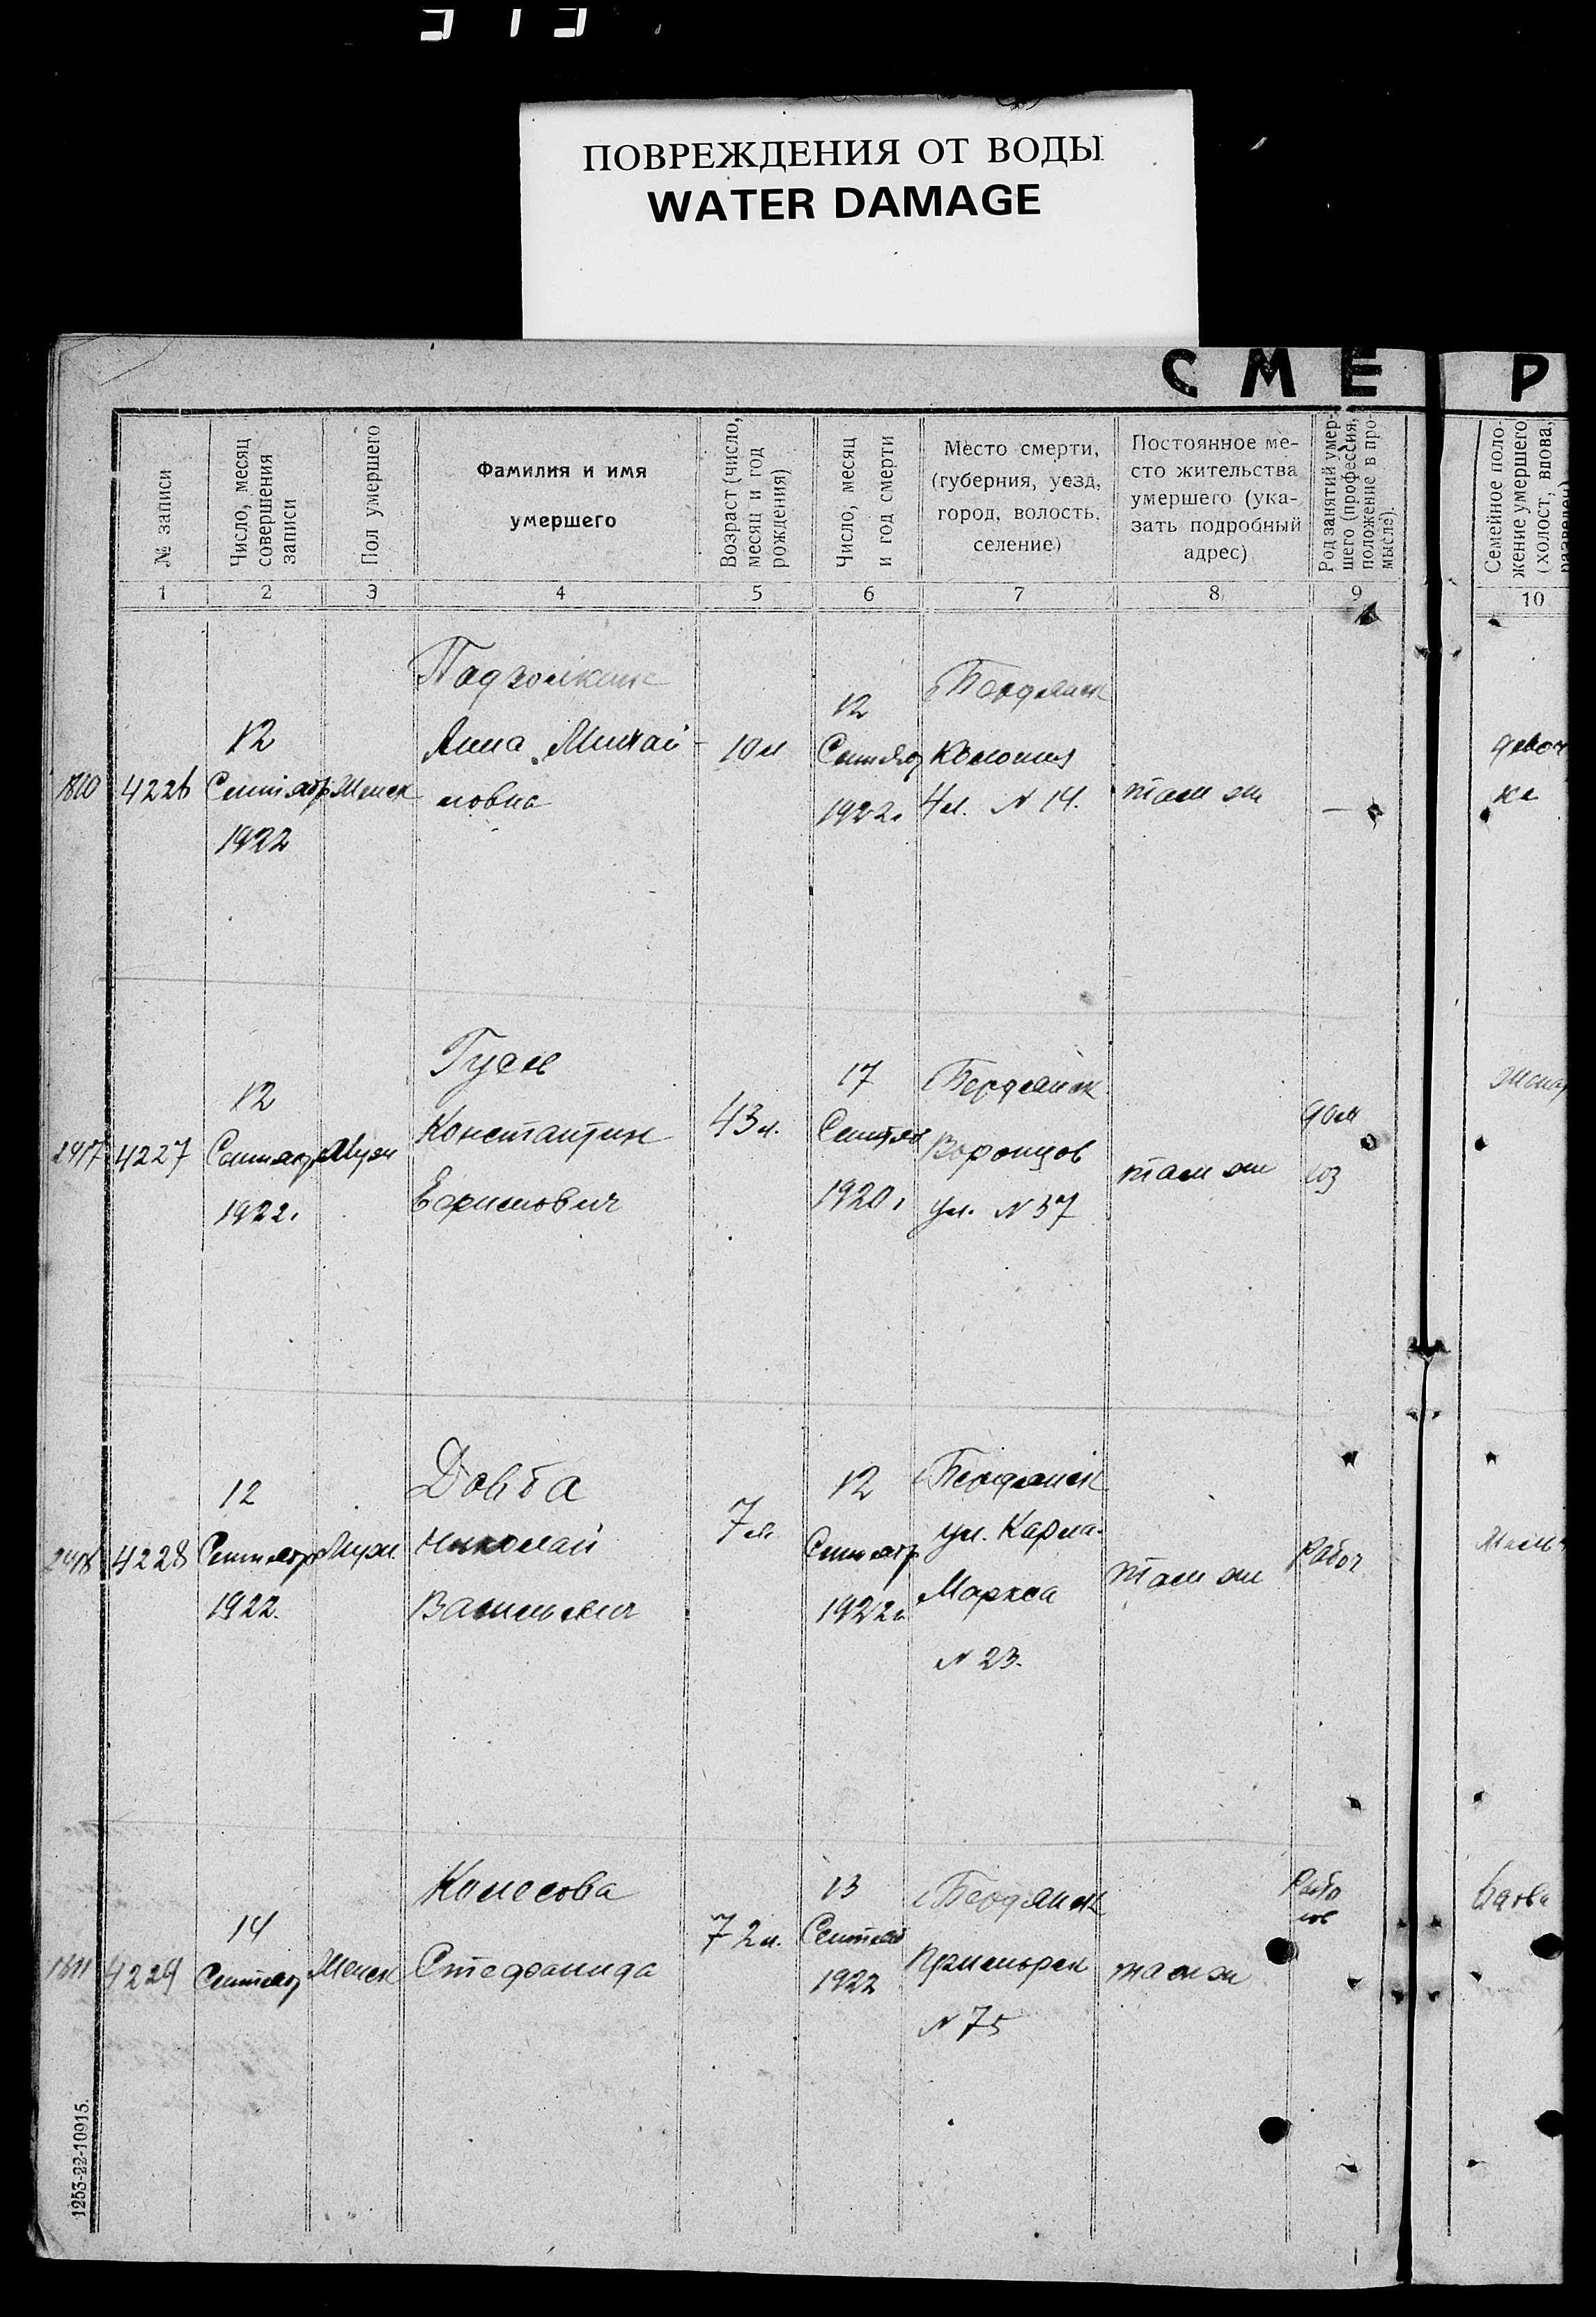 ПОВРЕЖДЕНИЯ ОТ ВОДЫ
WATER DAMAGE
СМЕ Р
№ записи
Число, месяц совершения записи
Пол умершего
Фамилия и имя
умершего
Возраст (число, месяц и год рождения)
Число, месяц и год смерти
Место смерти,
(губерния, уезд,
город, волость,
селение)
Постоянное ме-
сто жительства
умершего (ука-
зать подробный
адрес)
Род занятий умер-
шего (профессия,
положение в про-
мысле).
Семейное поло-
жение умершего
(холост, вдова,
разведен)
1 2 3 4 5 6 7 8 9 10
1810
4226
12
Сентябр
1922
Женск
Анна Михай-
ловна
10 м
12
Сентяб
1922.
Бердянск
Колония
4 л. N 14.
там же
—
девоч
ка
2417
4227
12
Сентяб
1922.
Муж
Константин
Ефимович
43 л.
17
Сентяб
1920.
Бердянск
Воронцов
ул. N 37
там же
дом
хоз
2418
4228
12
Сентябр
1922.
Муж.
Довба
Николай
Васильевич
7 м
12
Сентябр
1922
Бердянск
ул. Карла-
Маркса
N 23.
там же
Рабоч
Мальч
1811
4229
14
Сентяб
Женск
Колесова
Стефанида
72 л.
13
Сентяб
1922
Бердянск
Приморск
N 75
там же
вдова
1253-22-10915.